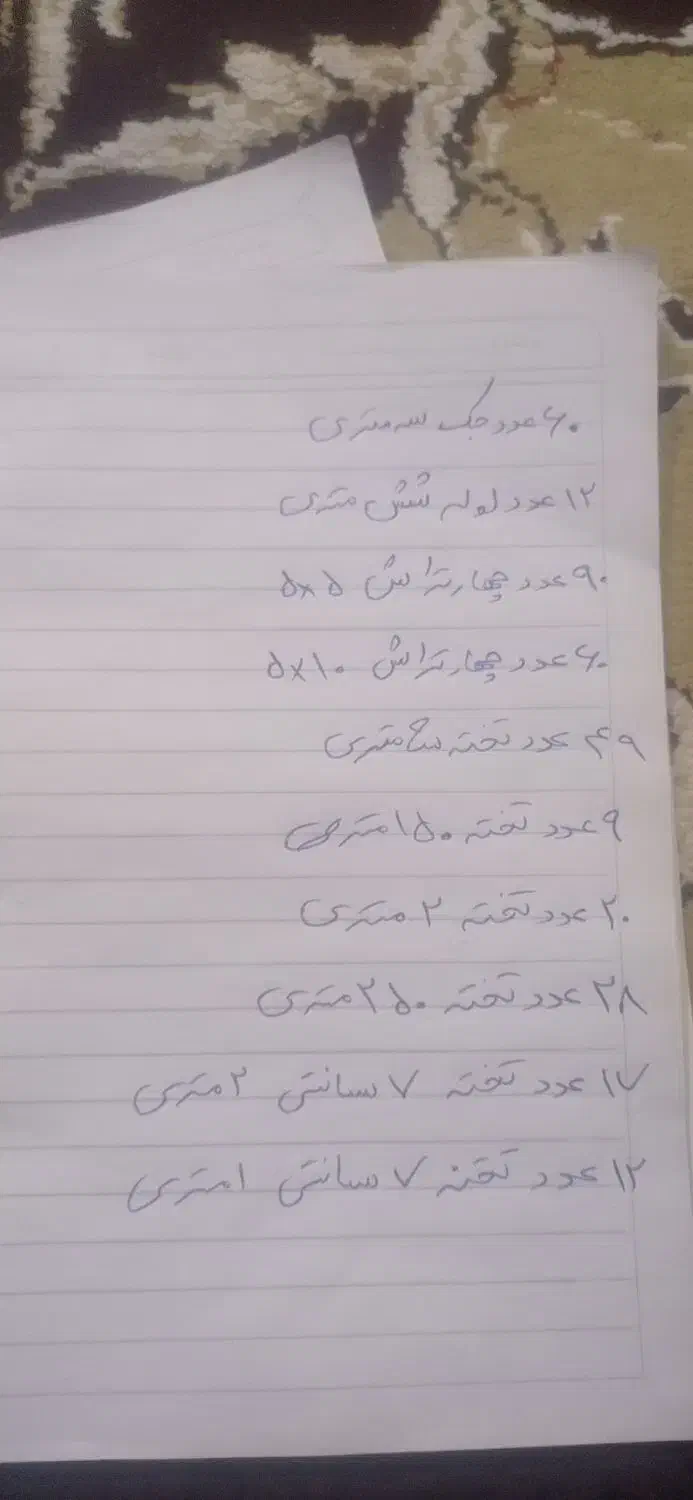 ۶۰ عدد جک سه متری
۱۲ عدد لوله شش متری
۹۰ عدد چهارتراش ۵x۵
۶۰ عدد چهارتراش ۵x۱۰
۴۹ عدد تخته سه متری
۹ عدد تخته ۱۵۰ متری
۲۰ عدد تخته ۲ متری
۳۸ عدد تخته ۲۵۰ متری
۱۷ عدد تخته ۷ سانتی ۲ متری
۱۲ عدد تخته ۷ سانتی ۱ متری